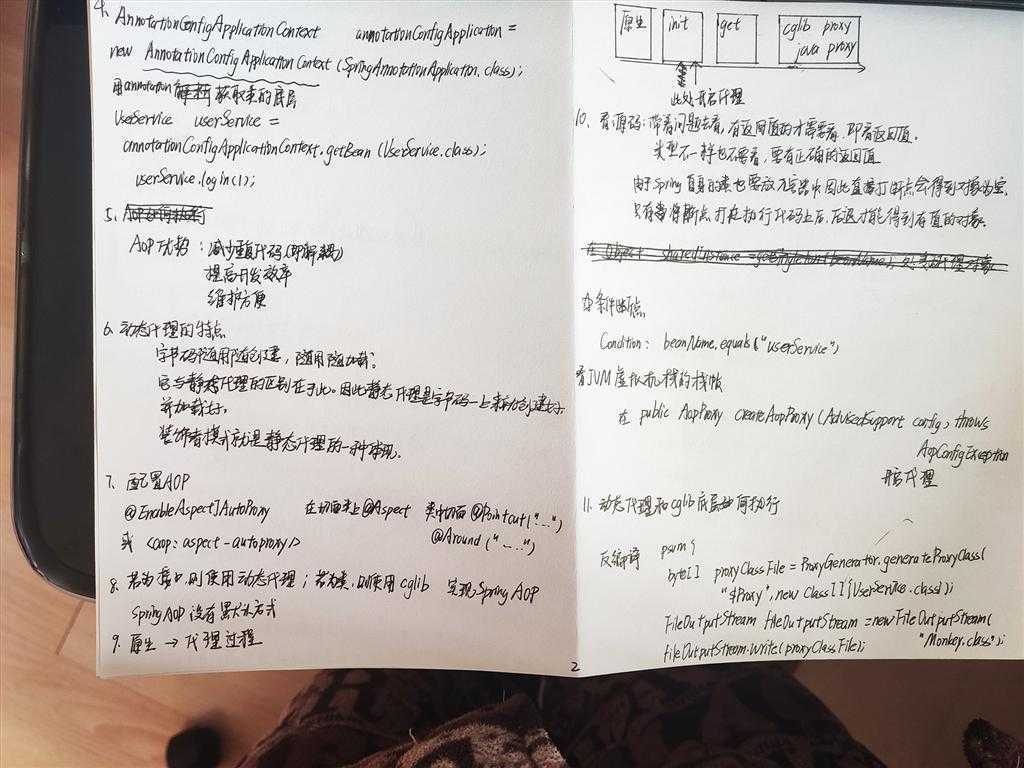 4. AnnotationConfigApplicationContext annotationConfigApplication =
new AnnotationConfigApplicationContext (SpringAnnotationApplication.class);
用annotation 获取类的底层
UserService userService =
annotationConfigApplicationContext.getBean (UserService.class);
userService.login(1);
5. AOP如何执行
AOP优势：减少重复代码(即解耦)
提高开发效率
维护方便
6. 动态代理的特点
字节码随用随创建，随用随加载。
它与静态代理的区别在于此。因此静态代理是字节码一上来就创建好
并加载好。
装饰者模式就是静态代理的一种体现.
7. 配置AOP
@EnableAspectJAutoProxy 在切面类上@Aspect 类中切面 @Pointcut("...")
或 <aop: aspect-autoproxy/> @Around ("....")
8. 若为接口,则使用动态代理；若为类,则使用cglib 实现Spring AOP
Spring AOP 没有默认方式
9. 原生 → 代理过程
原生 init get cglib proxy
java proxy
此处开启代理
10、看源码：带着问题去看,有返回值的才需要看,即看返回值.
类型不一样也不需看,要有正确的返回值
由于Spring自身的类也要放入容器中因此直接打断点会得到对象为空.
只有当将断点打在执行代码上后,后退才能得到有值的对象.
在 Object sharedInstance = getSingleton(beanName); 处
在条件断点
Condition: beanName.equals("userService")
看JVM虚拟机栈的栈帧
在 public AopProxy createAopProxy (AdvisedSupport config) throws
AopConfigException
开启代理
11. 动态代理和cglib底层如何执行
反编译 psvm {
byte[] proxyClassFile = ProxyGenerator.generateProxyClass(
"$Proxy", new Class[]{UserService.class});
FileOutputStream fileOutputStream = new FileOutputStream(
"Monkey.class");
fileOutputStream.write(proxyClassFile);
2